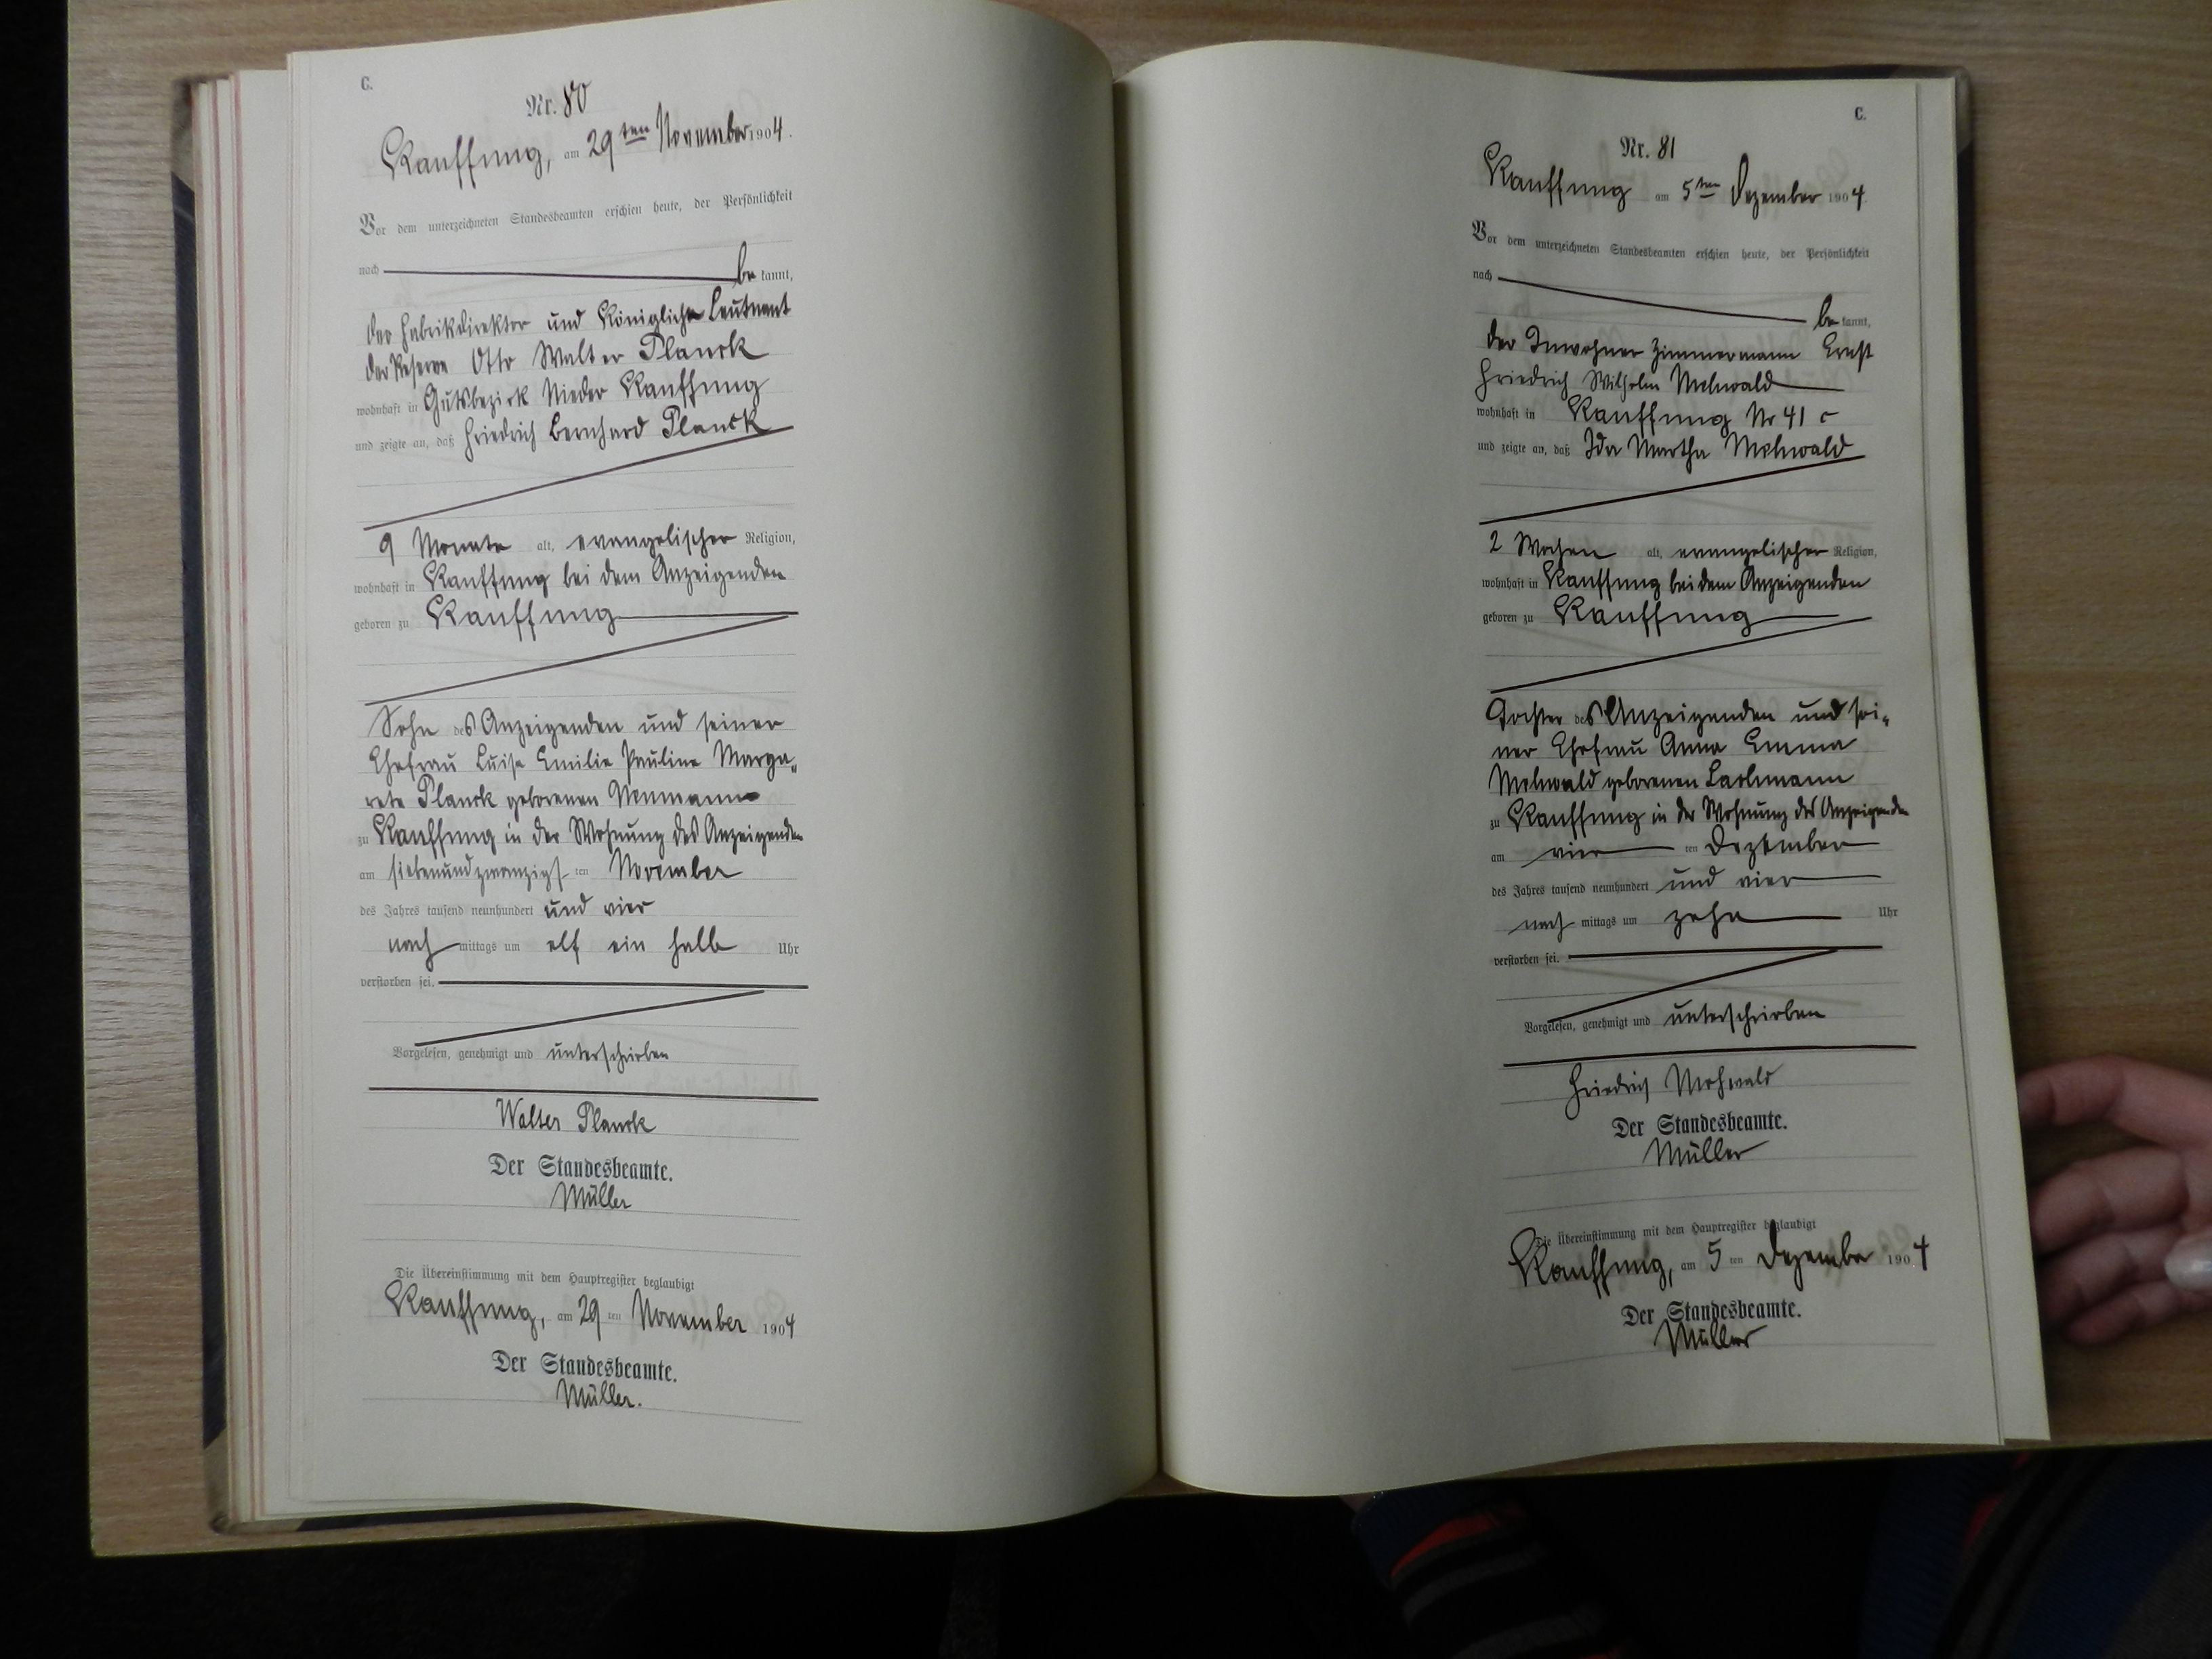 C.
Nr. 80
Kauffung, am 29ten November 1904.
Vor dem unterzeichneten Standesbeamten erschien heute, der Persönlichkeit
nach be kannt,
der Fabrikdirektor und Königliche Leutnant
der Reserve Otto Walter Planck
wohnhaft in Gutsbezirk Nieder Kauffung
und zeigte an, daß Friedrich Bernhard Planck
9 Monate alt, evangelischer Religion,
wohnhaft in Kauffung bei dem Anzeigenden
geboren zu Kauffung
Sohn des Anzeigenden und seiner
Ehefrau Luise Emilie Pauline Marga„
rete Planck geborenen Neumann
zu Kauffung in der Wohnung des Anzeigenden
am siebenundzwanzigs ten November
des Jahres tausend neunhundert und vier
nach mittags um elf ein halb Uhr
verstorben sei.
Vorgelesen, genehmigt und unterschrieben
Walter Planck
Der Standesbeamte.
Müller
Die Übereinstimmung mit dem Hauptregister beglaubigt
Kauffung, am 29 ten November 1904
Der Standesbeamte.
Müller.
C.
Nr. 81
Kauffung am 5ten Dezember 1904.
Vor dem unterzeichneten Standesbeamten erschien heute, der Persönlichkeit
nach be kannt,
der Inwohner Zimmermann Ernst
Friedrich Wilhelm Mohwald
wohnhaft in Kauffung Nr 41 c
und zeigte an, daß Ida Martha Mohwald
2 Wochen alt, evangelischer Religion,
wohnhaft in Kauffung bei dem Anzeigenden
geboren zu Kauffung
Tochter des Anzeigenden und sei„
ner Ehefrau Anna Emma
Mohwald geborenen
zu Kauffung in der Wohnung des Anzeigenden
am vier ten Dezember
des Jahres tausend neunhundert und vier
nach mittags um zehn Uhr
verstorben sei.
Vorgelesen, genehmigt und unterschrieben
Friedrich Mohwald
Der Standesbeamte.
Müller
Die Übereinstimmung mit dem Hauptregister beglaubigt
Kauffung, am 5 ten Dezember 1904
Der Standesbeamte.
Müller